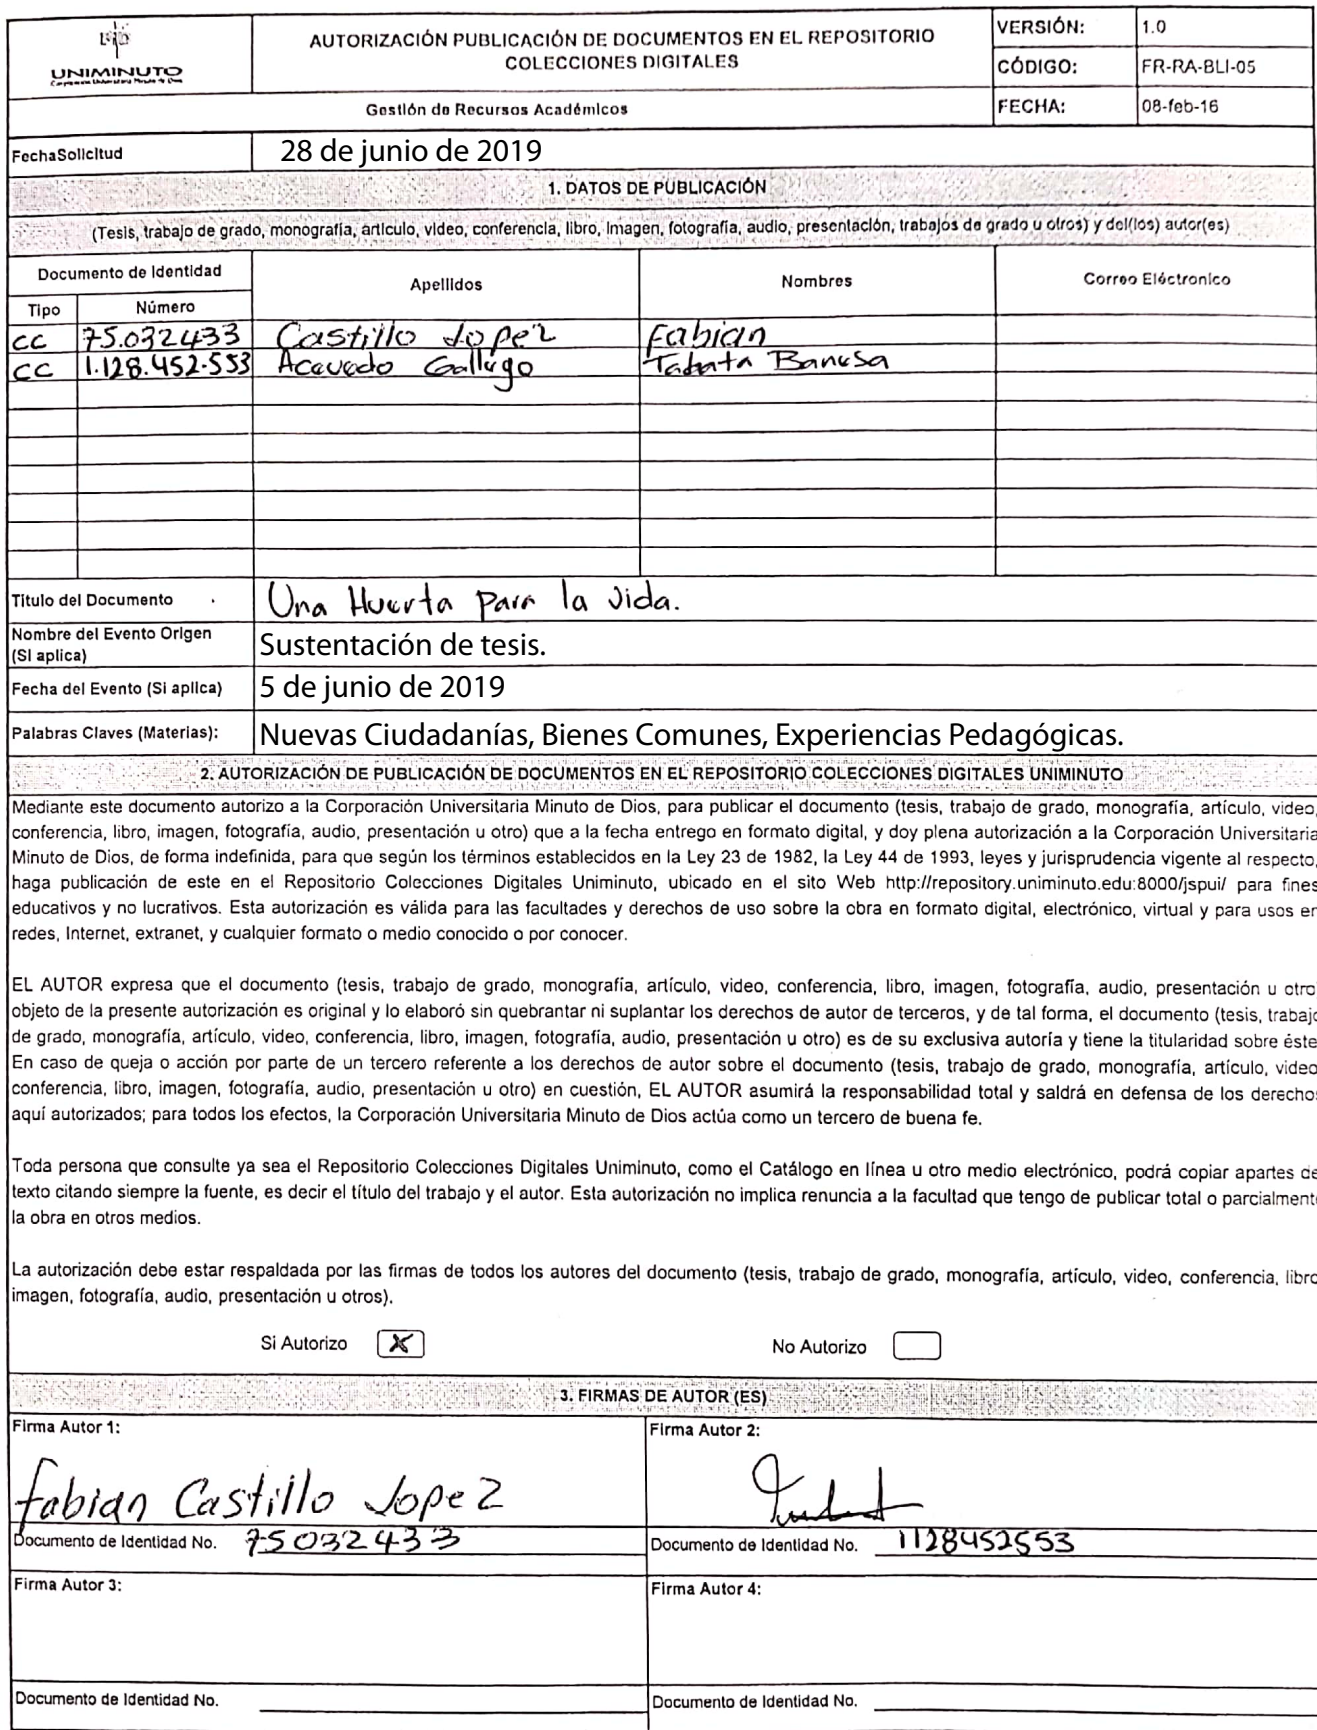 UNIMINUTO
Corporación Universitaria Minuto de Dios
AUTORIZACIÓN PUBLICACIÓN DE DOCUMENTOS EN EL REPOSITORIO
COLECCIONES DIGITALES
VERSIÓN: 1.0
CÓDIGO: FR-RA-BLI-05
Gestión de Recursos Académicos
FECHA: 08-feb-16
FechaSolicitud 28 de junio de 2019
1. DATOS DE PUBLICACIÓN
(Tesis, trabajo de grado, monografía, artículo, video, conferencia, libro, imagen, fotografía, audio, presentación, trabajos de grado u otros) y del(los) autor(es)
Documento de Identidad Apellidos Nombres Correo Eléctronico
Tipo Número
CC 75.032433 Castillo Lopez Fabian
CC 1.128.452.553 Acevedo Gallego Tabata Banesa
Titulo del Documento Una Huerta para la vida.
Nombre del Evento Origen
(Si aplica) Sustentación de tesis.
Fecha del Evento (Si aplica) 5 de junio de 2019
Palabras Claves (Materias): Nuevas Ciudadanías, Bienes Comunes, Experiencias Pedagógicas.
2. AUTORIZACIÓN DE PUBLICACIÓN DE DOCUMENTOS EN EL REPOSITORIO COLECCIONES DIGITALES UNIMINUTO
Mediante este documento autorizo a la Corporación Universitaria Minuto de Dios, para publicar el documento (tesis, trabajo de grado, monografía, artículo, video,
conferencia, libro, imagen, fotografía, audio, presentación u otro) que a la fecha entrego en formato digital, y doy plena autorización a la Corporación Universitaria
Minuto de Dios, de forma indefinida, para que según los términos establecidos en la Ley 23 de 1982, la Ley 44 de 1993, leyes y jurisprudencia vigente al respecto,
haga publicación de este en el Repositorio Colecciones Digitales Uniminuto, ubicado en el sitio Web http://repository.uniminuto.edu:8000/jspui/ para fines
educativos y no lucrativos. Esta autorización es válida para las facultades y derechos de uso sobre la obra en formato digital, electrónico, virtual y para usos en
redes, Internet, extranet, y cualquier formato o medio conocido o por conocer.
EL AUTOR expresa que el documento (tesis, trabajo de grado, monografía, artículo, video, conferencia, libro, imagen, fotografía, audio, presentación u otro
objeto de la presente autorización es original y lo elaboró sin quebrantar ni suplantar los derechos de autor de terceros, y de tal forma, el documento (tesis, trabajo
de grado, monografía, artículo, video, conferencia, libro, imagen, fotografía, audio, presentación u otro) es de su exclusiva autoría y tiene la titularidad sobre éste
En caso de queja o acción por parte de un tercero referente a los derechos de autor sobre el documento (tesis, trabajo de grado, monografía, artículo, video
conferencia, libro, imagen, fotografía, audio, presentación u otro) en cuestión, EL AUTOR asumirá la responsabilidad total y saldrá en defensa de los derechos
aquí autorizados; para todos los efectos, la Corporación Universitaria Minuto de Dios actúa como un tercero de buena fe.
Toda persona que consulte ya sea el Repositorio Colecciones Digitales Uniminuto, como el Catálogo en línea u otro medio electrónico, podrá copiar apartes de
texto citando siempre la fuente, es decir el título del trabajo y el autor. Esta autorización no implica renuncia a la facultad que tengo de publicar total o parcialment
la obra en otros medios.
La autorización debe estar respaldada por las firmas de todos los autores del documento (tesis, trabajo de grado, monografía, artículo, video, conferencia, libro
imagen, fotografía, audio, presentación u otros).
Si Autorizo X No Autorizo
3. FIRMAS DE AUTOR (ES)
Firma Autor 1: Firma Autor 2:
Fabian Castillo Lopez
Documento de Identidad No. 75032433 Documento de Identidad No. 1128452553
Firma Autor 3: Firma Autor 4:
Documento de Identidad No. Documento de Identidad No.